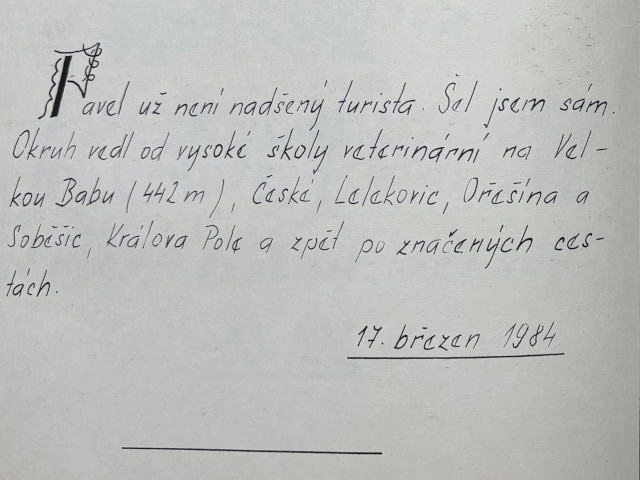 Pavel už není nadšený turista. Šel jsem sám.
Okruh vedl od vysoké školy veterinární na Vel-
kou Babu (442 m), České, Lelekovic, Ořešína a
Soběšic, Králova Pole a zpět po značených ces-
tách.
17. březen 1984